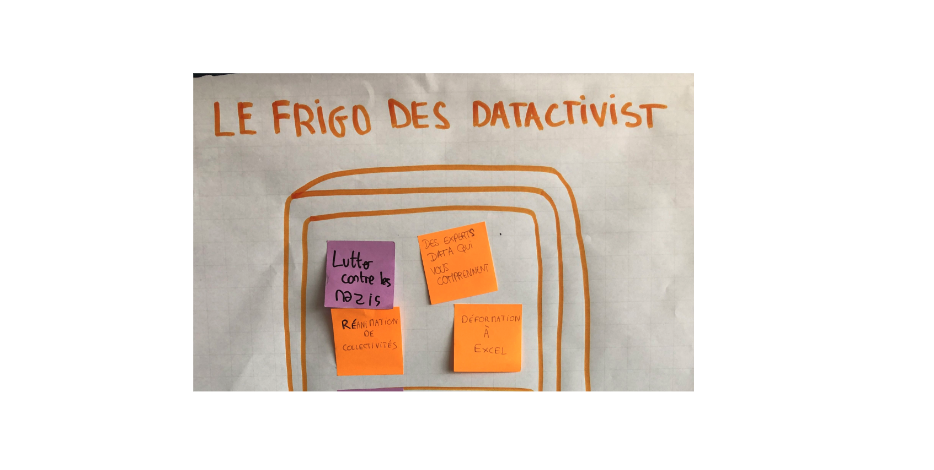 LE FRIGO DES DATACTIVIST
Lutte
contre les
nazis
DES EXPERTS
DATA QUI
VOUS
COMPRENNENT
RÉANIMATION
DE
COLLECTIVITÉS
DÉFORMATION
À
EXCEL